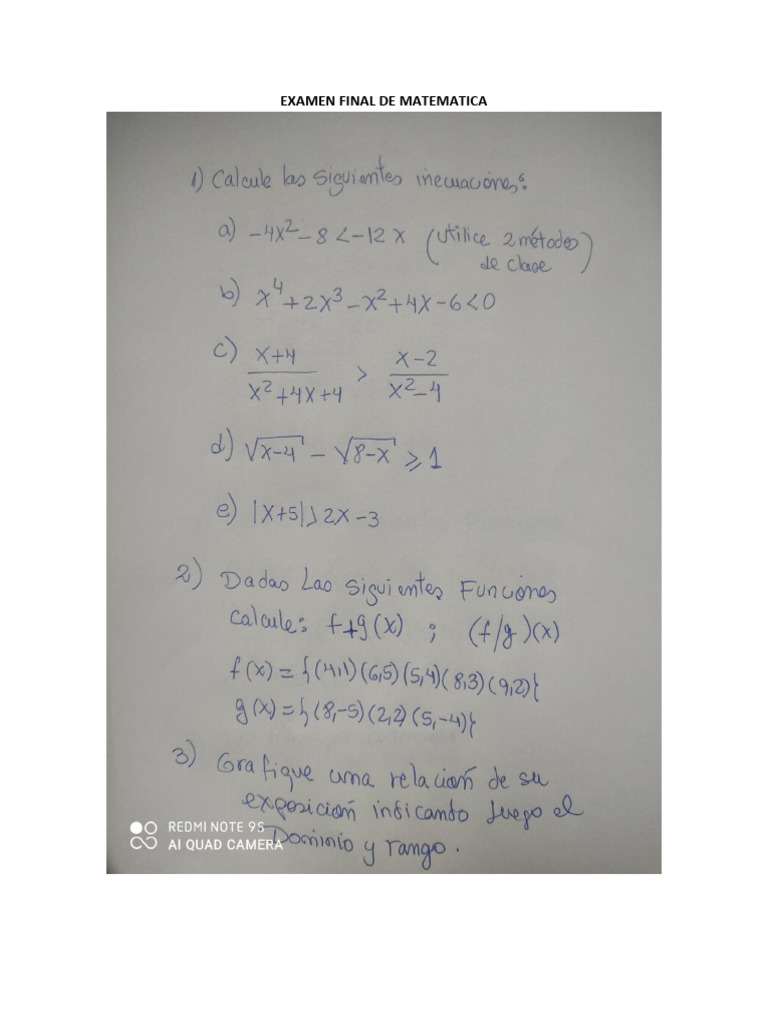 EXAMEN FINAL DE MATEMATICA
1) Calcule las siguientes inecuaciones:
a) -4x² - 8 < -12x (utilice 2 métodos
de clase)
b) x⁴ + 2x³ - x² + 4x - 6 < 0
c) x+4 / x²+4x+4 > x-2 / x²-4
d) √x-4 - √8-x ≥ 1
e) |x+5| > 2x - 3
2) Dadas Las siguientes Funciones
calcule: f+g(x) ; (f/g)(x)
f(x) = {(4,1)(6,5)(5,4)(8,3)(9,2)}
g(x) = {(8,-5)(2,2)(5,-4)}
3) Grafique una relación de su
exposición indicando luego el
Dominio y rango.
REDMI NOTE 9S
AI QUAD CAMERA